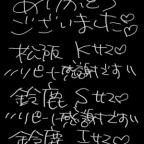 ありがとう
ございました♡
松阪 Kサマ♡
〃リピート感謝です〃
鈴鹿 Sサマ♡
〃リピート感謝です〃
鈴鹿 Iサマ♡